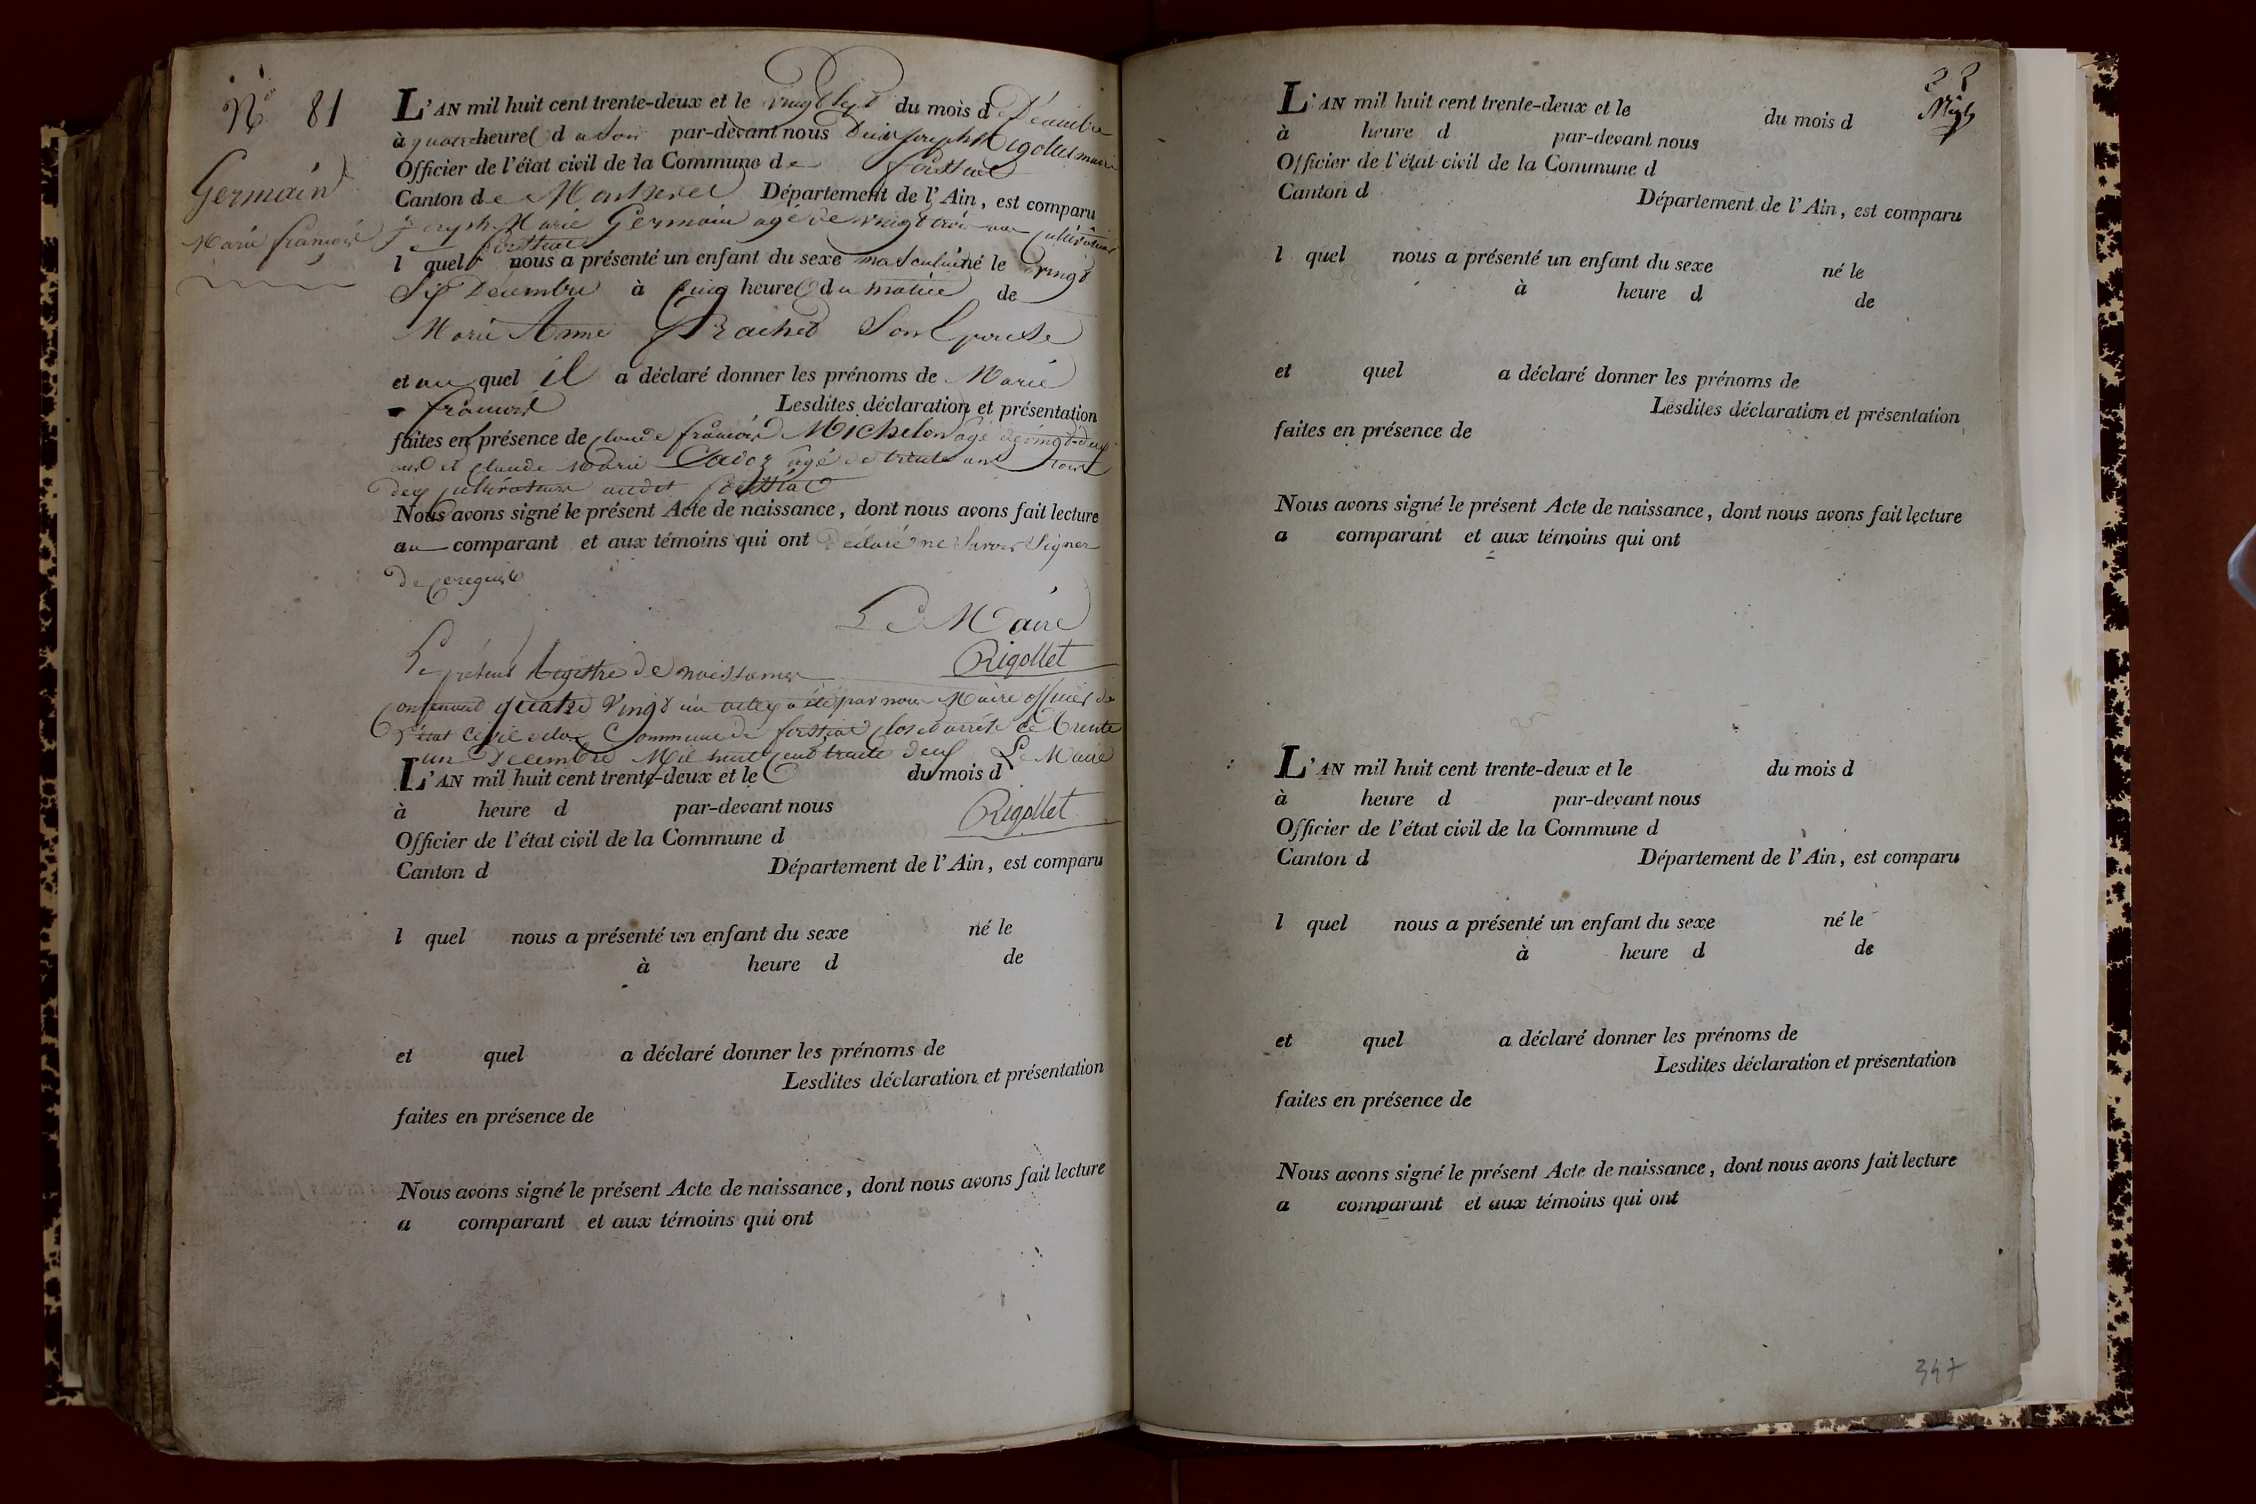 N° 81
Germain
Marie françois
L'AN mil huit cent trente-deux et le vingt sept du mois de Décembre
à quatre heures du soir par-devant nous Denis joseph Rigollet maire
Officier de l'état civil de la Commune de foissiat
Canton de Montrevel Département de l'Ain, est comparu
joseph Marie Germain agé de vingt trois ans cultivateur
à foissiat
lequel nous a présenté un enfant du sexe masculin né le vingt
six Décembre à cinq heures du matin de
Marie Anne Son Epouse
et au quel il a déclaré donner les prénoms de Marie
françois Lesdites déclaration et présentation
faites en présence de claude françois Michelon agé de vingt-deux
ans et claude Marie agé de trente ans tous
deux cultivateurs audit foissiat
Nous avons signé le présent Acte de naissance, dont nous avons fait lecture
au comparant et aux témoins qui ont Déclaré ne Savoir Signer
De ce requis
Le Maire
Rigollet
Le présent Registre de naissances
contenant quatre vingt un actes a été par nous Maire officier de
l'état civil de la Commune de foissiat clos et arrêté ce trente
un Décembre Mil huit cent trente deux Le Maire
Rigollet
L'AN mil huit cent trente-deux et le du mois d
à heure d par-devant nous
Officier de l'état civil de la Commune d
Canton d Département de l'Ain, est comparu
l quel nous a présenté un enfant du sexe né le
à heure d de
et quel a déclaré donner les prénoms de
Lesdites déclaration et présentation
faites en présence de
Nous avons signé le présent Acte de naissance, dont nous avons fait lecture
a comparant et aux témoins qui ont
L'AN mil huit cent trente-deux et le du mois d
à heure d par-devant nous
Officier de l'état civil de la Commune d
Canton d Département de l'Ain, est comparu
l quel nous a présenté un enfant du sexe né le
à heure d de
et quel a déclaré donner les prénoms de
Lesdites déclaration et présentation
faites en présence de
Nous avons signé le présent Acte de naissance, dont nous avons fait lecture
a comparant et aux témoins qui ont
L'AN mil huit cent trente-deux et le du mois d
à heure d par-devant nous
Officier de l'état civil de la Commune d
Canton d Département de l'Ain, est comparu
l quel nous a présenté un enfant du sexe né le
à heure d de
et quel a déclaré donner les prénoms de
Lesdites déclaration et présentation
faites en présence de
Nous avons signé le présent Acte de naissance, dont nous avons fait lecture
a comparant et aux témoins qui ont
347